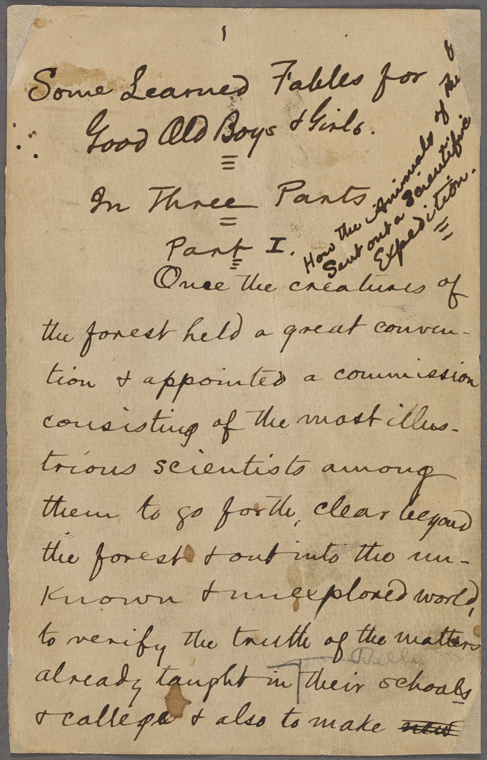 1
Some Learned Fables for
Good Old Boys & Girls.
In Three Parts
Part I.
How the Animals of the
Sent out a Scientific
Expedition.
Once the creatures of
the forest held a great conven-
tion & appointed a commission
consisting of the most illus-
trious scientists among
them to go forth, clear beyond
the forest & out into the un-
known & unexplored world,
to verify the truth of the matters
already taught in their schools
& colleges & also to make new